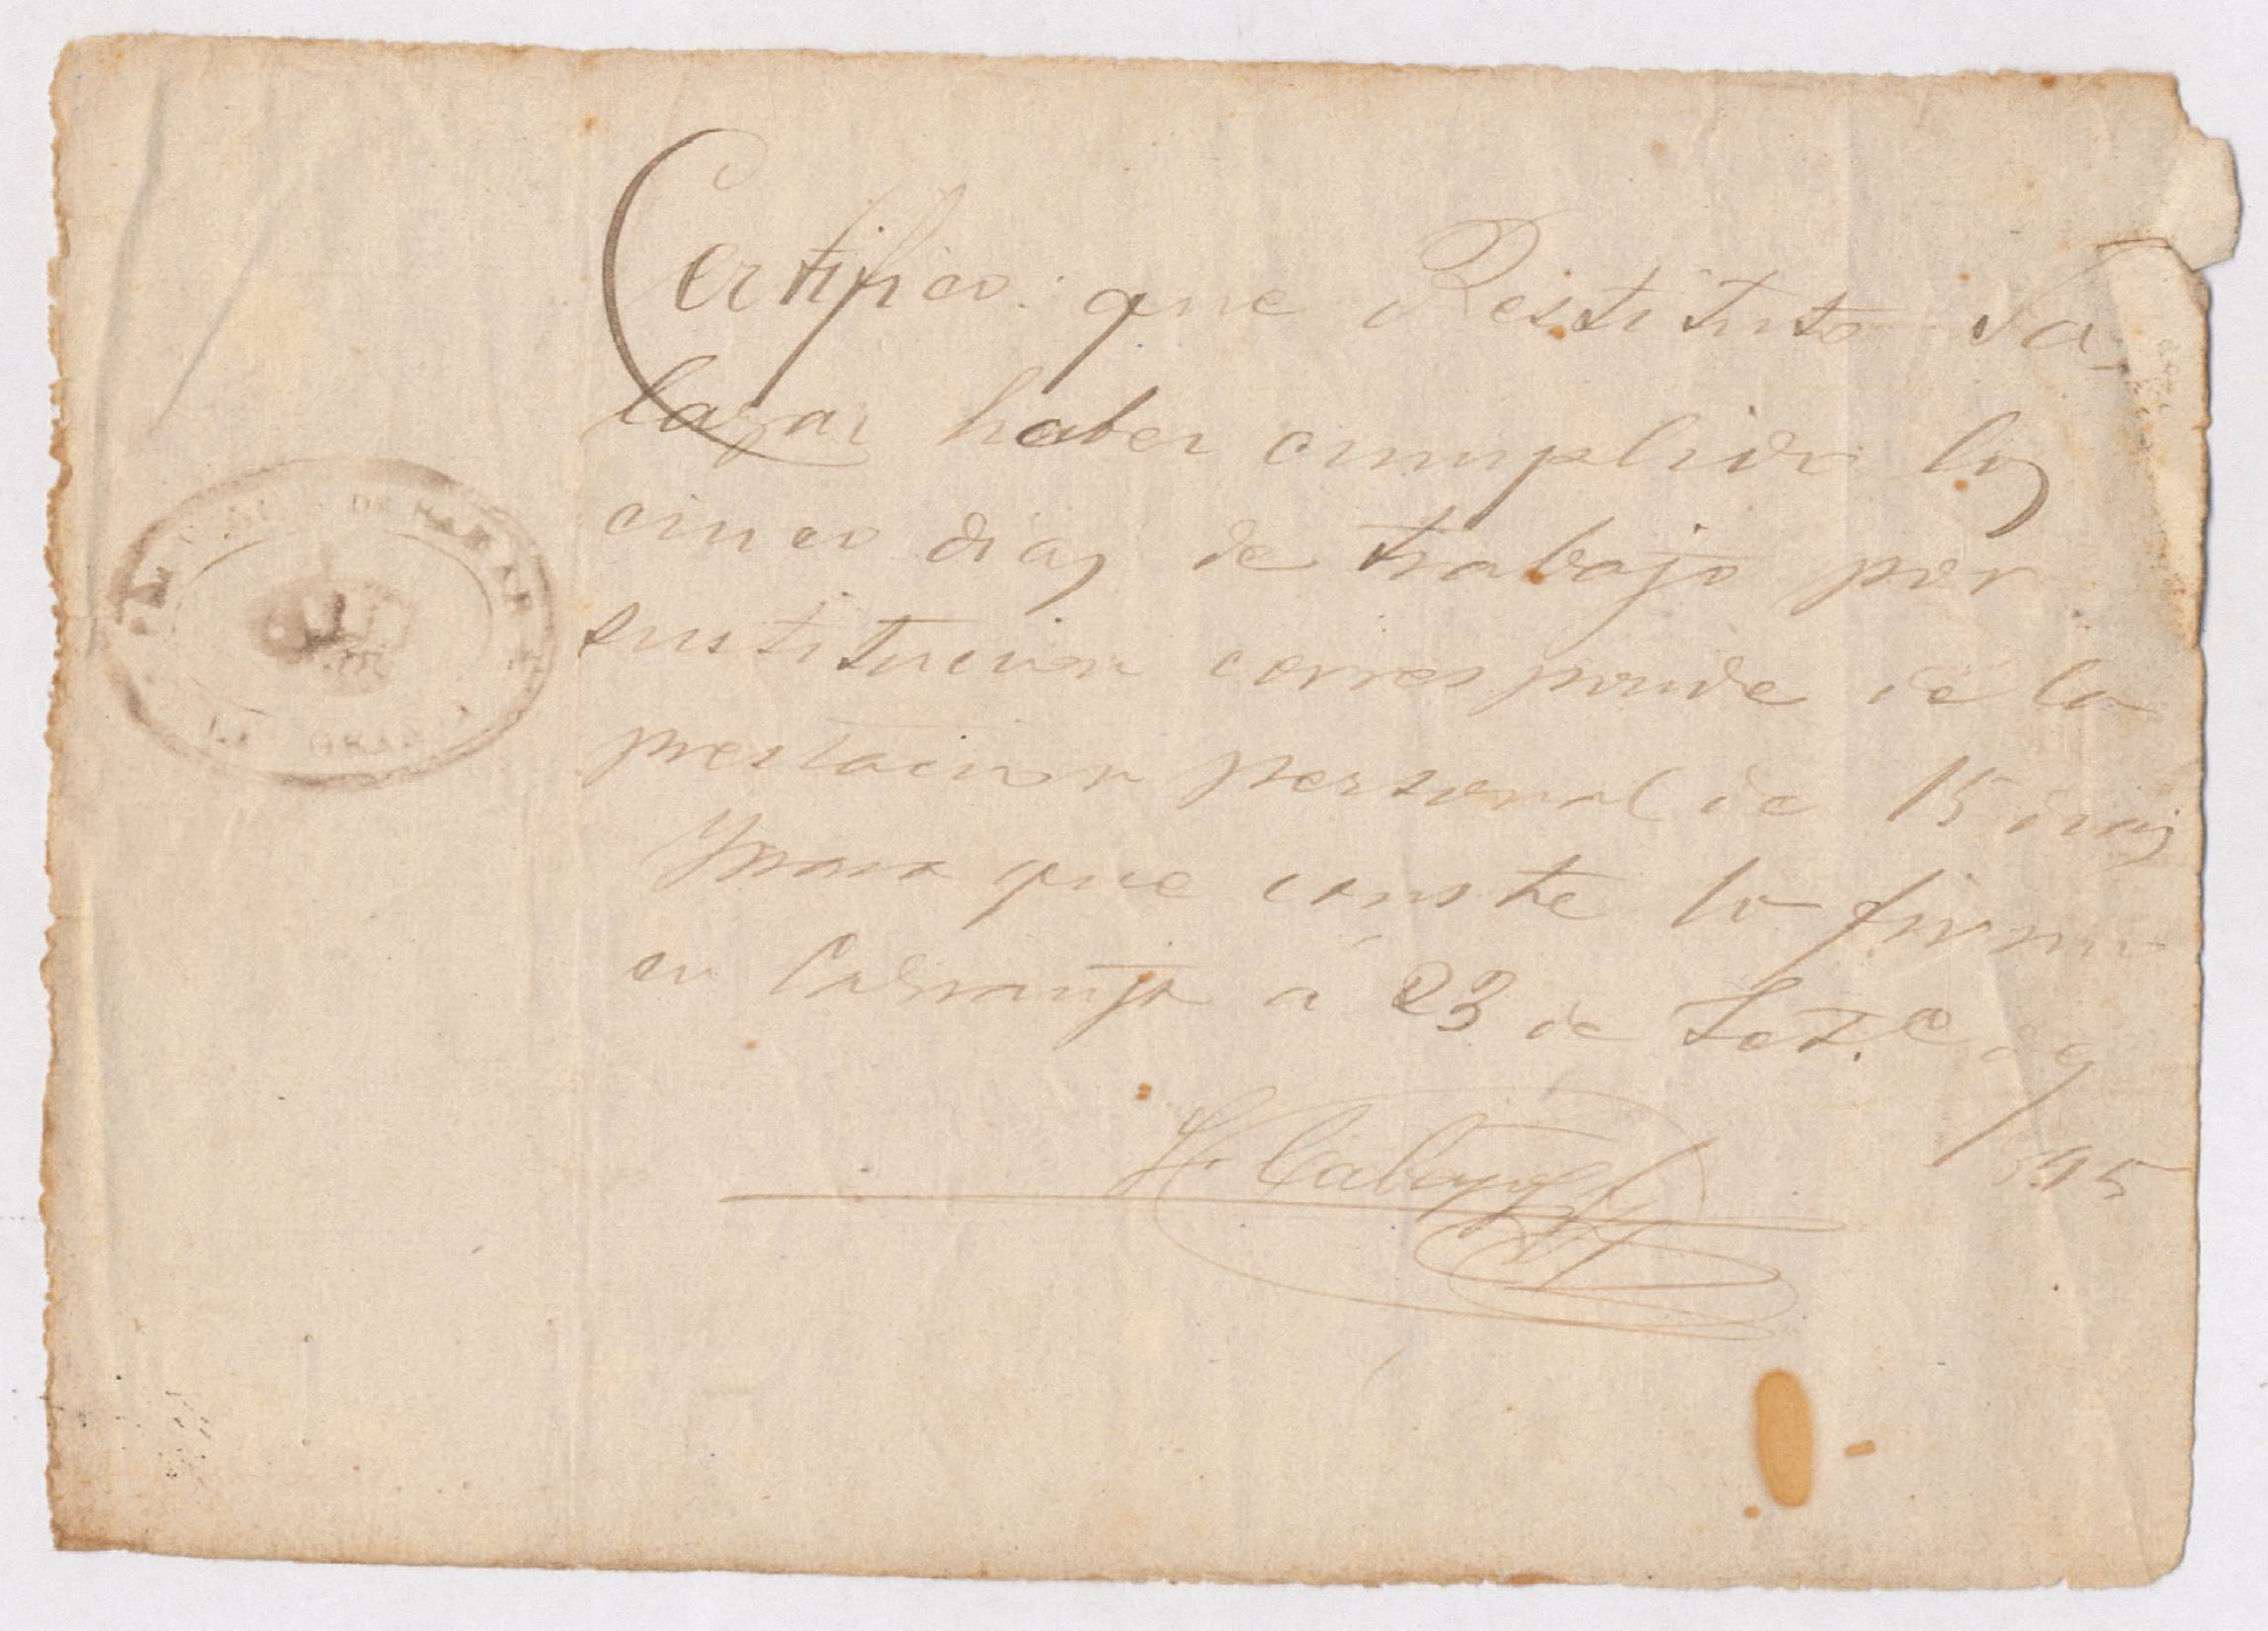 Certifico: que Restituto Sa-
lazar haber cumplido los
cinco dias de trabajo por
sustitucion corresponde de la
prestacion personal de 15 dias
Y para que conste lo firmo
en a 23 de Set.e
895
DE